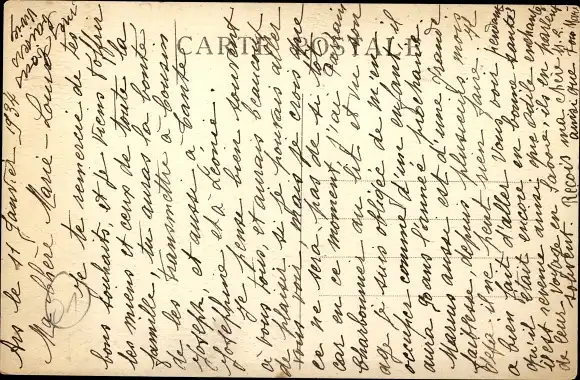 CARTE POSTALE
Ars le 11 Janvier 1934
Ma chère Marie-Louise
Je te remercie de tes
bons souhaits, et je viens t'offrir
les miens et ceux de toute la
famille, tu auras la bonté
de les transmettre à Cousin
Joseph, et aussi à tante
Joséphine et à Léonie.
Je pense bien souvent
à vous tous, et aurais beaucoup
de plaisir si je pouvais aller
vous voir, mais je crois que
ce ne sera pas de si tôt
car en ce moment j'ai parrain
Charbonnier au lit et vu son
âge je suis obligée de m'en
occuper comme d'un enfant, il
aura dans l'année prochaine
Marius aussi est d'une grande
faiblesse, depuis plusieurs mois
déjà il ne peut rien faire. Il
a bien fait d'aller vous voir pendant
qu'il était encore en bonne santé
il est revenu ainsi que Odile enchantés
de leur voyage en Savoie ils en parlent
souvent. Reçois ma chère M. L.
ainsi que